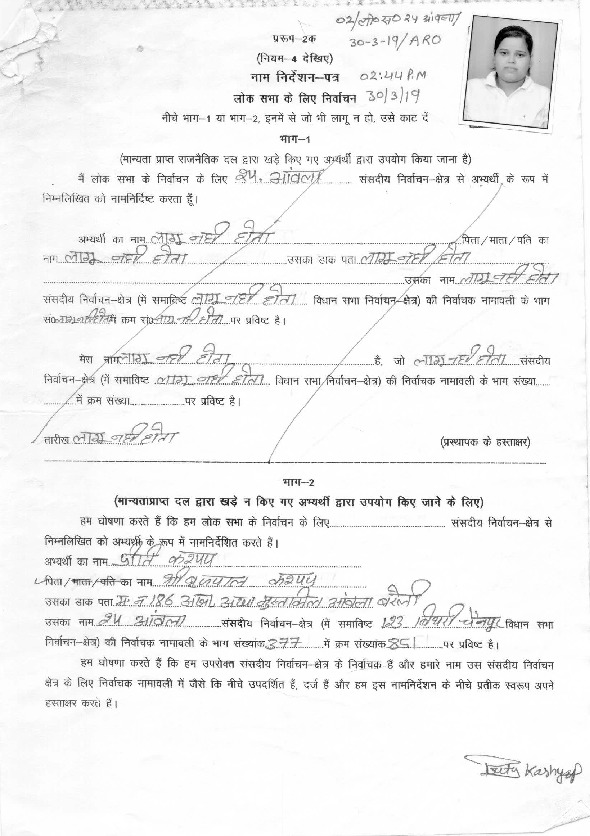 02/लो०स० 24 आंवला/
प्ररूप–2क 30-3-19/ARO
(नियम–4 देखिए)
नाम निर्देशन–पत्र 02:44 P.M
लोक सभा के लिए निर्वाचन 30/3/19
नीचे भाग–1 या भाग–2, इनमें से जो भी लागू न हो, उसे काट दें
भाग–1
(मान्यता प्राप्त राजनैतिक दल द्वारा खड़े किए गए अभ्यर्थी द्वारा उपयोग किया जाना है)
मैं लोक सभा के निर्वाचन के लिए 24, आंवला संसदीय निर्वाचन–क्षेत्र से अभ्यर्थी के रूप में
निम्नलिखित को नामनिर्दिष्ट करता हूँ।
अभ्यर्थी का नाम लागू नही होता पिता/माता/पति का
नाम लागू नही होता उसका डाक पता लागू नही होता
उसका नाम लागू नही होता
संसदीय निर्वाचन–क्षेत्र (में समाविष्ट लागू नही होता विधान सभा निर्वाचन–क्षेत्र) की निर्वाचक नामावली के भाग
सं० लागू नही होता में क्रम सं० लागू नही होता पर प्रविष्ट है।
मेरा नाम लागू नही होता है, जो लागू नही होता संसदीय
निर्वाचन–क्षेत्र (में समाविष्ट लागू नही होता विधान सभा निर्वाचन–क्षेत्र) की निर्वाचक नामावली के भाग संख्या
में क्रम संख्या पर प्रविष्ट है।
तारीख लागू नही होता (प्रस्थापक के हस्ताक्षर)
भाग–2
(मान्यताप्राप्त दल द्वारा खड़े न किए गए अभ्यर्थी द्वारा उपयोग किए जाने के लिए)
हम घोषणा करते हैं कि हम लोक सभा के निर्वाचन के लिए संसदीय निर्वाचन–क्षेत्र से
निम्नलिखित को अभ्यर्थी के रूप में नामनिर्देशित करते हैं।
अभ्यर्थी का नाम प्रीति कश्यप
पिता/माता/पति का नाम श्री कश्यप
उसका डाक पता म. न 186 आंवला बरेली
उसका नाम 24 आंवला संसदीय निर्वाचन–क्षेत्र (में समाविष्ट 123 बिथरी चैनपुर विधान सभा
निर्वाचन–क्षेत्र) की निर्वाचक नामावली के भाग संख्यांक 377 में क्रम संख्यांक 851 पर प्रविष्ट है।
हम घोषणा करते हैं कि हम उपरोक्त संसदीय निर्वाचन–क्षेत्र के निर्वाचक हैं और हमारे नाम उस संसदीय निर्वाचन
क्षेत्र के लिए निर्वाचक नामावली में जैसे कि नीचे उपदर्शित हैं, दर्ज हैं और हम इस नामनिर्देशन के नीचे प्रतीक स्वरूप अपने
हस्ताक्षर करते हैं।
Kashyap